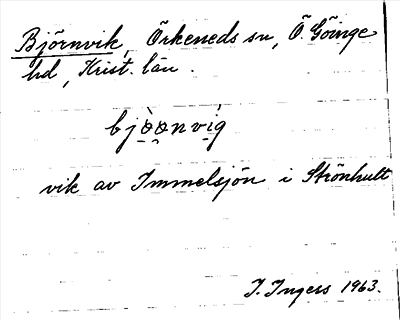 Björnvik, Örkeneds sn, Ö. Göinge
hd, Krist. län.
bjö̀ǫnvíg
vik av Immelsjön i Strönhult
I. Ingers 1963.